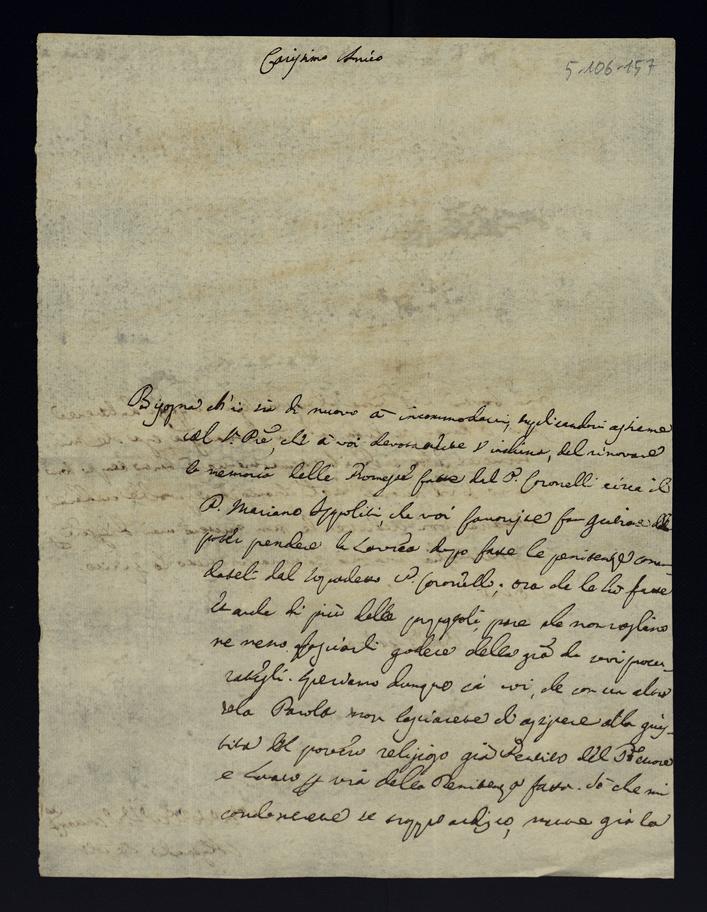 Carissimo Amico
5-106-157
Bisogna ch'io sia di nuovo à incommodarvi, supplicandovi assieme
col P. Pre, che à voi devotamente s'inchina, del rinovare
la memoria delle Promesse fatte dal P. Coronelli circa il
P. Mariano Ippoliti, che voi favoriste far graziare di
poter prendere la Laurea dopo fatte le penitenze coman-
dateli dal P. Coronelli; ora che le hà fatte
et anche di più delle pare che non vogliano
ne meno lasciarli godere della gra da voi procu-
ratagli. Speriamo dunque in voi, che con un altra
sola Parola non lasciarete di assistere alla giu-
stitia del povero religioso già Pentito dell'Errore
e della Penitenza fatta. Sò che mi
condonerete se troppo ardisco, mentre già la